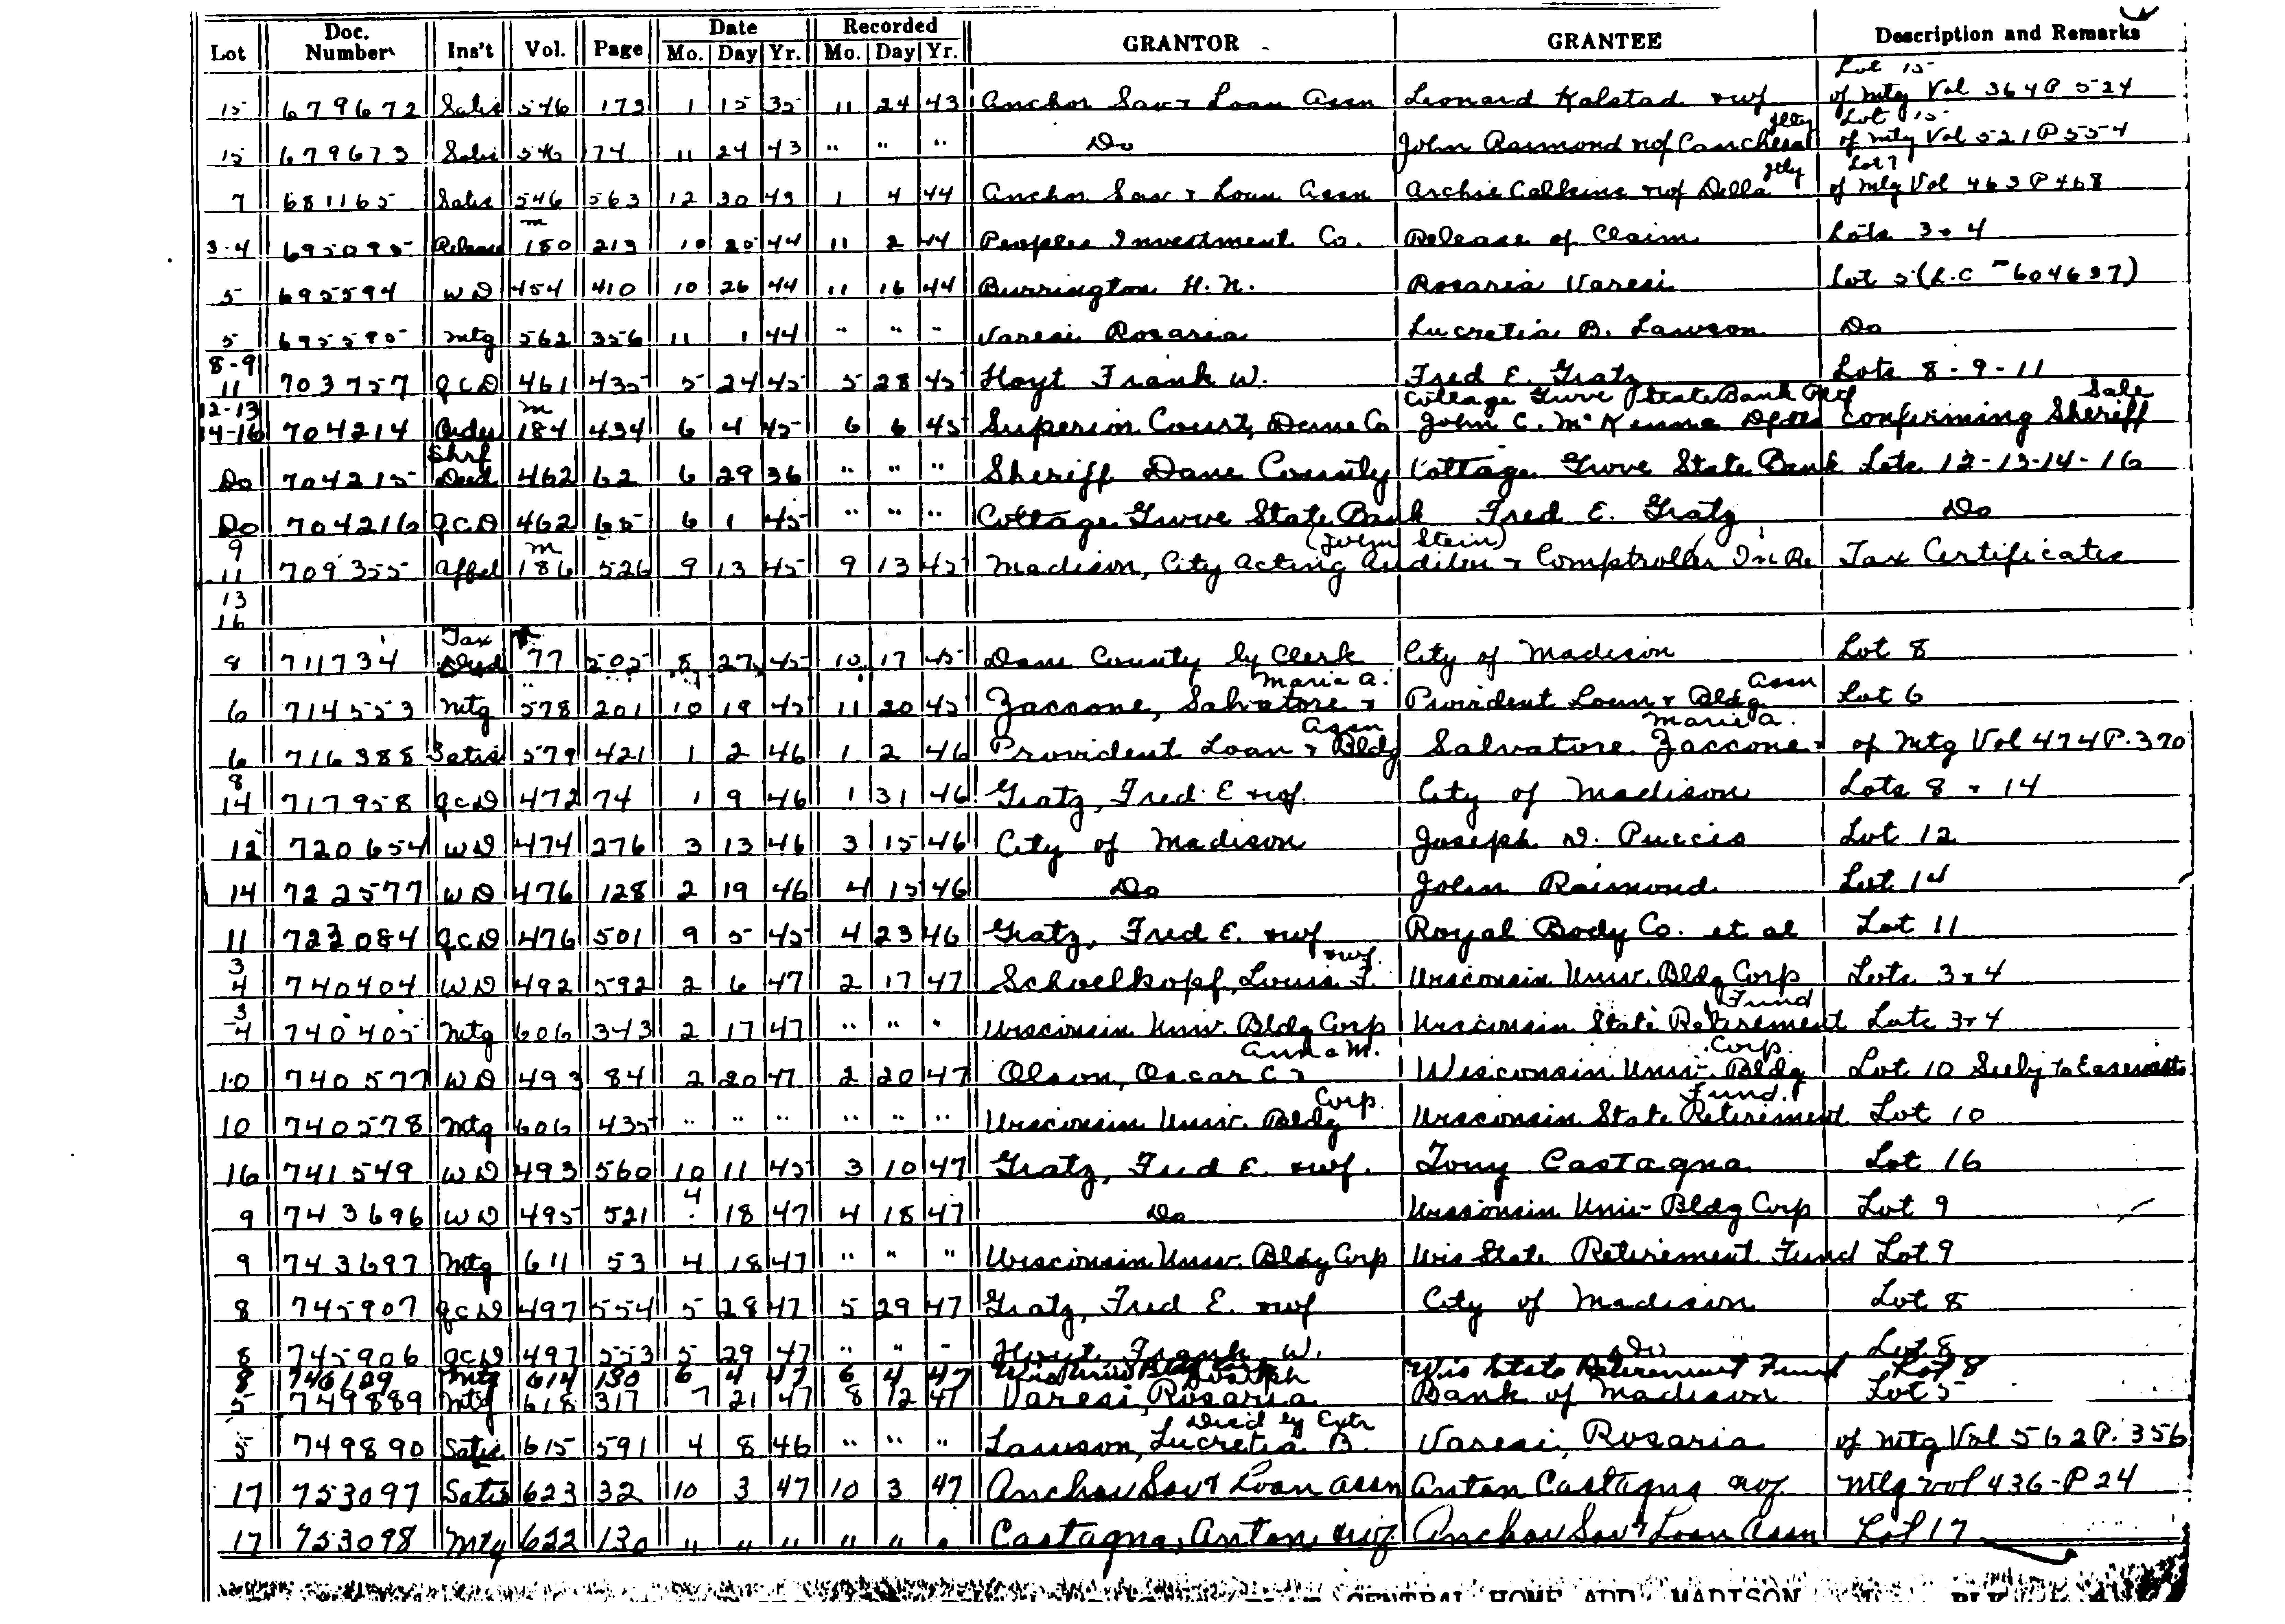 Lot Doc. Number Ins't Vol. Page Date Mo. Day Yr. Recorded Mo. Day Yr. GRANTOR GRANTEE Description and Remarks
15 679672 Satis 546 173 1 15 35 11 24 43 Anchor Sav & Loan Assn Leonard Kalstad & wf Lot 15 of Mtg Vol 364 P 524
15 679673 Satis 546 174 11 24 43 " " " Do John Raimond & wf jtly Lot 15 of Mtg Vol 521 P 554
7 681165 Satis 546 563 12 30 43 1 4 44 Anchor Sav & Loan Assn Archie Calkins & wf Della jtly Lot 7 of Mtg Vol 463 P 468
3-4 695095 Release m 180 213 10 25 44 11 2 44 Peoples Investment Co. Release of Claim Lots 3 & 4
5 695594 WD 454 410 10 26 44 11 16 44 Burrington H. N. Rosaria Varesi Lot 5 (L.C - 604637)
5 695595 Mtg 562 356 11 1 44 " " " Varesi Rosaria Lucretia B. Lawson Do
8-9 11 703757 QCD 461 435 5 24 45 5 28 45 Hoyt Frank W. Fred E. Gratz Lots 8-9-11
12-13 14-16 704214 Order m 184 434 6 4 45 6 6 45 Superior Court, Dane Co Cottage Grove State Bank Plf John C. McKenna Dfdts Confirming Sheriff Sale
Do 704215 Shrf Deed 462 62 6 29 36 " " " Sheriff Dane County Cottage Grove State Bank Lots 12-13-14-16
Do 704216 QCD 462 65 6 1 45 " " " Cottage Grove State Bank Fred E. Gratz Do
9 11 13 16 709355 Affd m 186 526 9 13 45 9 13 45 Madison, City Acting Auditor & Comptroller (John Stein) In Re Tax Certificates
8 711734 Tax Deed 77 505 8 27 45 10 17 45 Dane County by Clerk City of Madison Lot 8
6 714553 Mtg 578 201 10 19 45 11 20 45 Zaccone, Salvatore & Maria A. Provident Loan & Bldg Assn Lot 6
6 716388 Satis 579 421 1 2 46 1 2 46 Provident Loan & Bldg Assn Salvatore Zaccone & Maria A. of Mtg Vol 474 P. 370
8 14 717958 QCD 472 74 1 9 46 1 31 46 Gratz, Fred E & wf. City of Madison Lots 8 & 14
12 720654 WD 474 276 3 13 46 3 15 46 City of Madison Joseph D. Puccio Lot 12
14 722577 WD 476 128 2 19 46 4 15 46 Do John Raimond Lot 14
11 723084 QCD 476 501 9 5 45 4 23 46 Gratz, Fred E. & wf Royal Body Co. et al Lot 11
3 4 740404 WD 492 592 2 6 47 2 17 47 Schoelkopf, Louis F. & wf. Wisconsin Univ. Bldg Corp Lots 3 & 4
3 4 740405 Mtg 606 343 2 17 47 " " " Wisconsin Univ. Bldg Corp Wisconsin State Retirement Fund Lots 3 & 4
10 740577 WD 493 84 2 20 47 2 20 47 Olson, Oscar C & Anna M. Wisconsin Univ. Bldg Corp. Lot 10 Subj to Easements
10 740578 Mtg 606 435 " " " " " " Wisconsin Univ. Bldg Corp. Wisconsin State Retirement Fund. Lot 10
16 741549 WD 493 560 10 11 45 3 10 47 Gratz, Fred E. & wf. Tony Castagna Lot 16
9 743696 WD 495 521 4 18 47 4 18 47 Do Wisconsin Univ- Bldg Corp Lot 9
9 743697 Mtg 611 53 4 18 47 " " " Wisconsin Univ. Bldg Corp Wis State Retirement Fund Lot 9
8 745907 QCD 497 554 5 28 47 5 29 47 Gratz, Fred E. & wf City of Madison Lot 8
8 745906 QCD 497 553 5 29 47 " " " Hoyt Frank W. Do Lot 8
8 746129 Mtg 614 130 6 4 47 6 4 47 Wis Univ Bldg Corp Wis State Retirement Fund Lot 8
5 749889 Mtg 618 317 7 21 47 8 12 47 Varesi, Rosaria Bank of Madison Lot 5
5 749890 Satis 615 591 4 8 46 " " " Lawson, Lucretia B. Dec'd by Extr Varesi, Rosaria of Mtg Vol 562 P. 356
17 753097 Satis 623 32 10 3 47 10 3 47 Anchor Sav & Loan Assn Anton Castagna & wf Mtg Vol 436-P 24
17 753098 Mtg 622 130 " " " " " " Castagna, Anton & wf Anchor Sav & Loan Assn Lot 17
CENTRAL HOME ADD MADISON